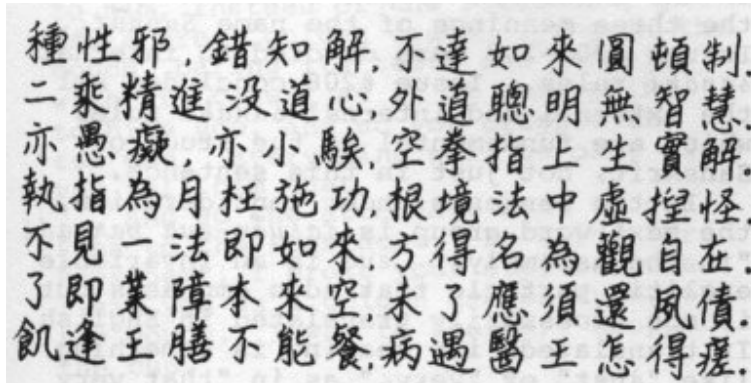 種性邪,錯知解,不達如來圓頓制.
二乘精進没道心,外道聰明無智慧.
亦愚癡,亦小騃,空拳指上生實解.
執指為月枉施功,根境法中虛揑怪.
不見一法即如來,方得名為觀自在.
了即業障本來空,未了應須還夙債.
飢逢王膳不能餐,病遇醫王怎得瘥.